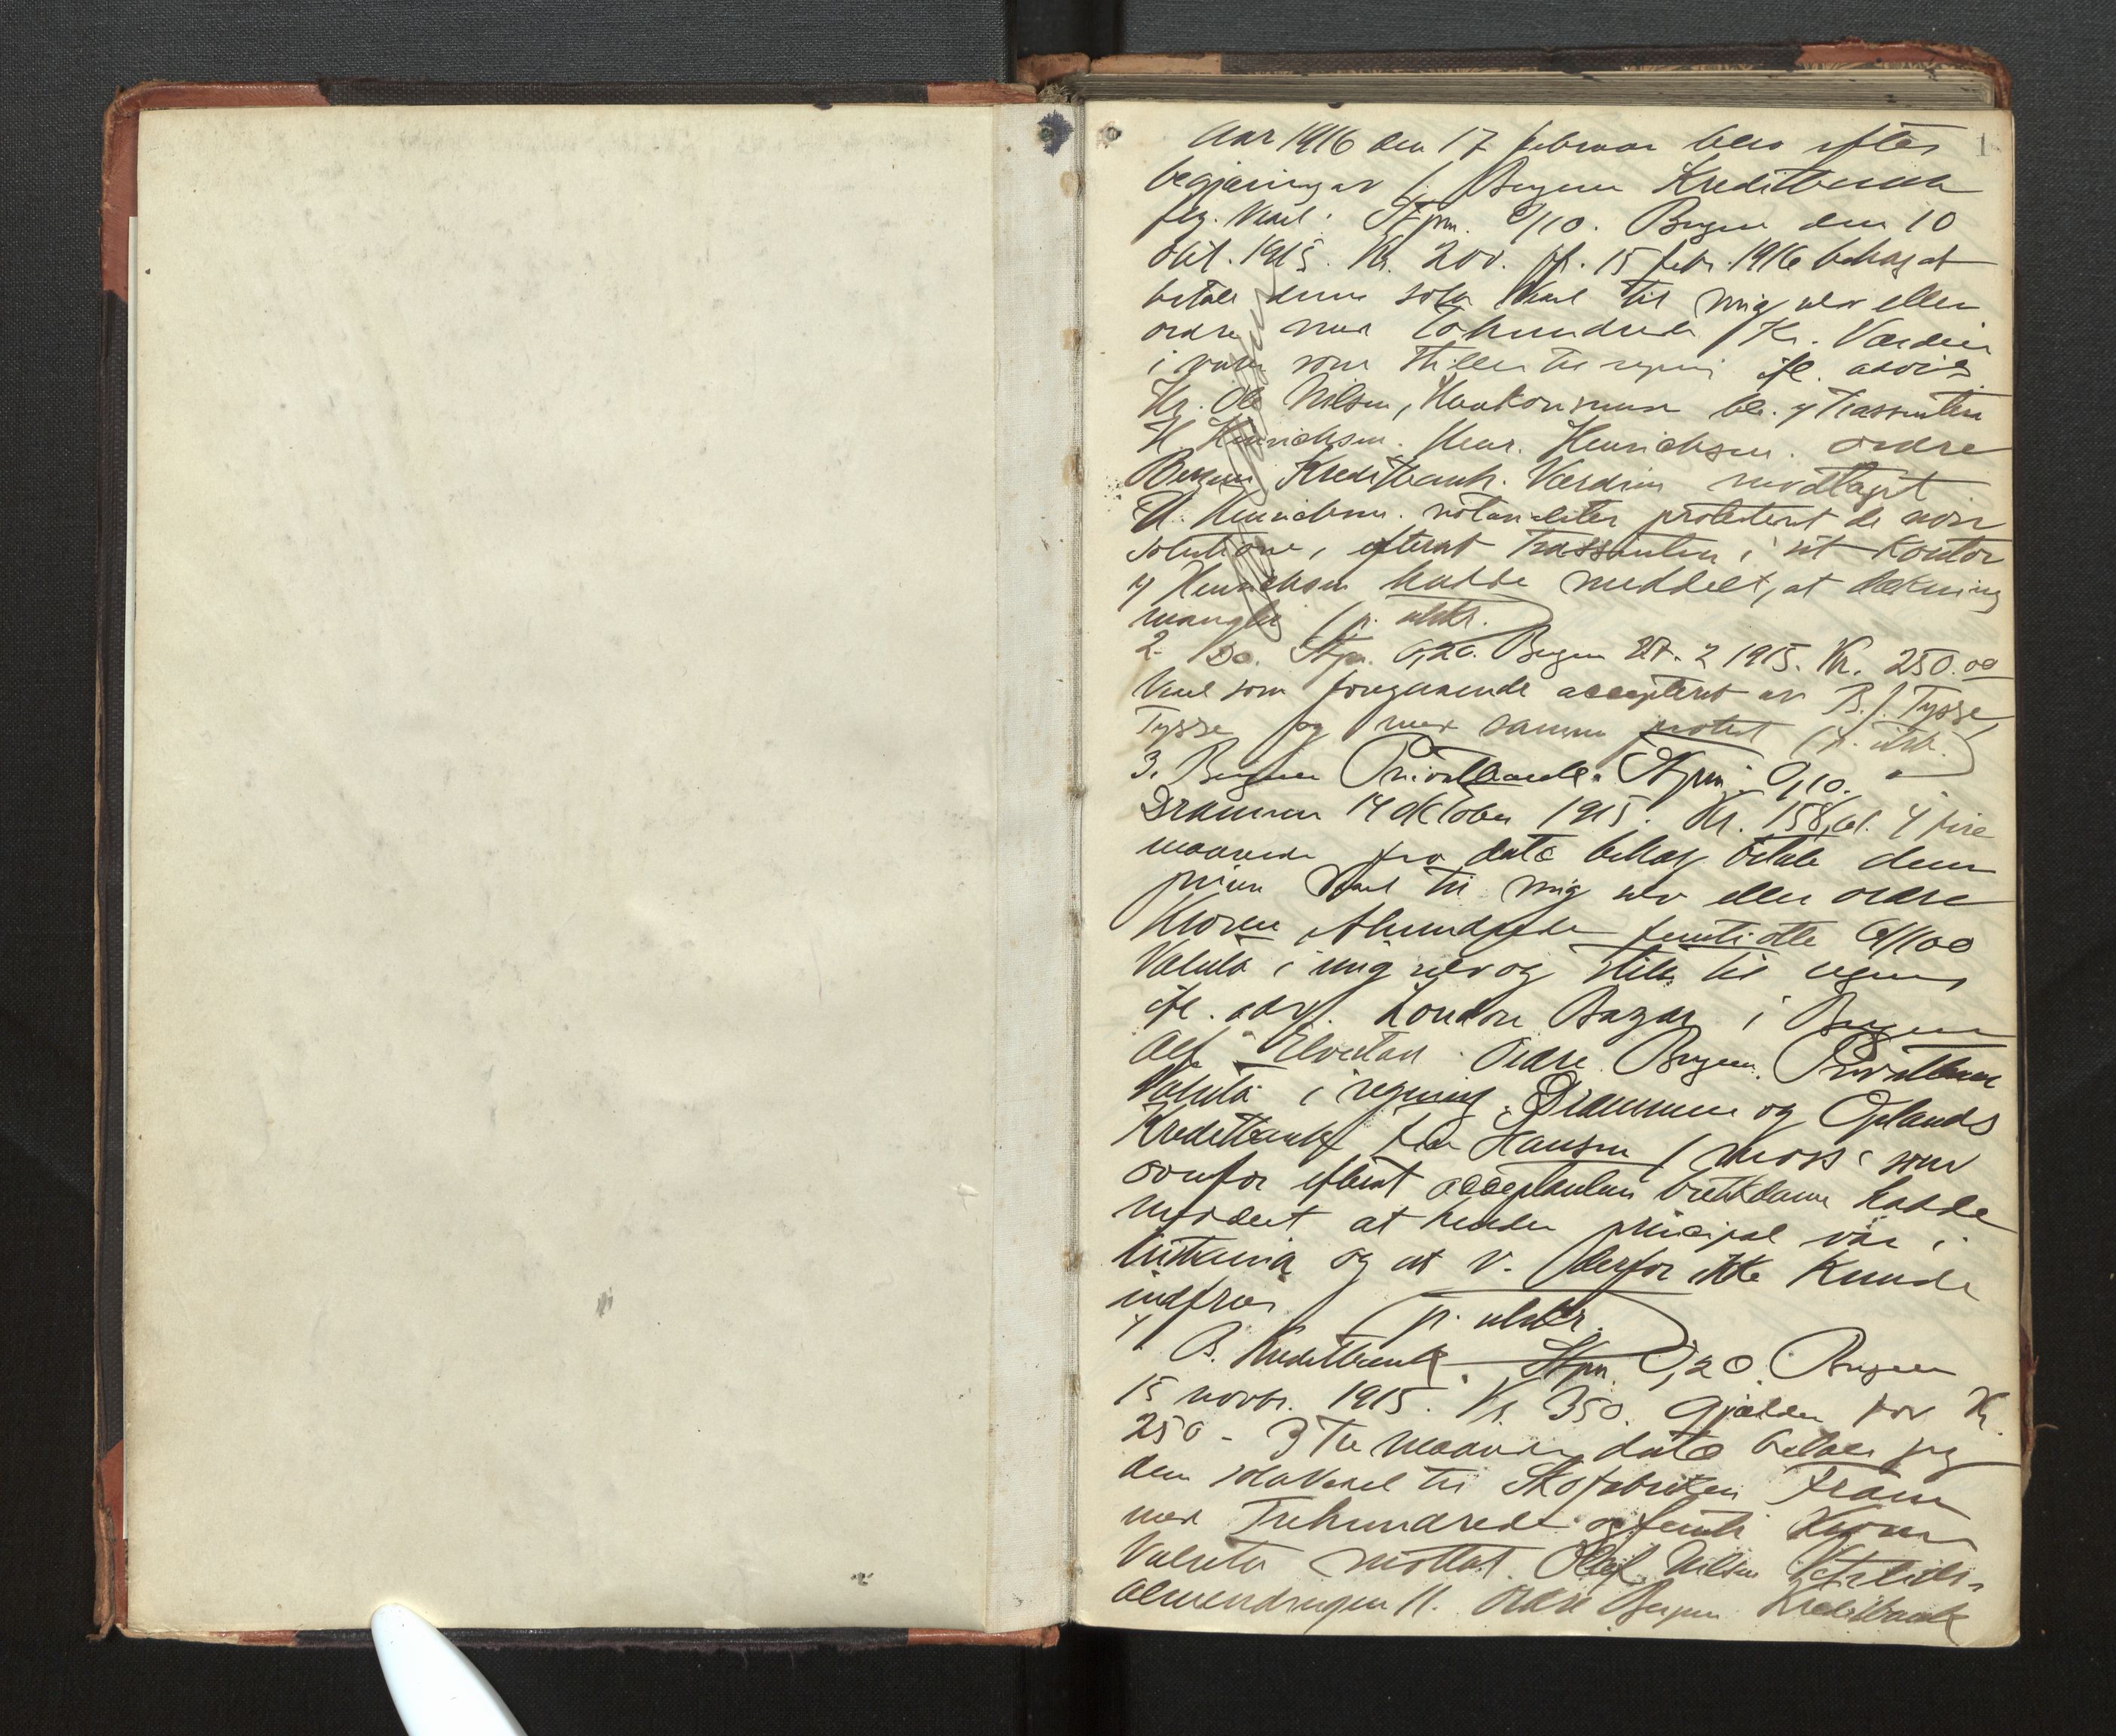 1
Aar 1916 den 17 februar blev efter
begjæring av Bergens Kreditbank
flg. Vexel: Stpm. 0/10. Bergen den 10
okt. 1915. Kr. 200. pr. 15 febr. 1916 behag at
betale denne sola Vexel til mig selv eller
ordre med Tohundrede Kr. Værdien
i varer som stilles til regning ifl. advis
Hr. Ole Nilsen, Haakon
H. Henrichsen. Henr. Henrichsen. ordre
Bergens Kreditbank. Værdien modtaget
H. Henrichsen. notarialiter protestert de non
solutione, efterat Trassenten i sit Kontor
Henrichsen hadde meddelt, at dækning
mangler (p. utstr.
2. Do. Stpm. 0,20. Bergen 27. 2 1915. Kr. 250.00
Vexel som foregaaende accepteret av B. J. Tysse,
Tysse og med samme protest (p. utstr.)
3. Bergens Privatbank. Stpm. 0,10.
Drammen 14 oktober 1915. Kr. 158,61. 4 fire
maaneder fra dato behag betale denne
prima Vexel til mig selv eller ordre
Kroner Ethundrede femtiotte 61/100
Valuta i mig selv og stilles til regning
ifl. advis. London Bazar i Bergen
Alf Elvestad. Ordre Bergens Privatbank
Valuta i regning. Drammen og Oplands
Kreditbank Hansen / Moss som
ovenfor efterat acceptantens hadde
meddelt at hendes principal var i
Kristiania og at v. derfor ikke kunde
indfries (p. utstr.)
4
B. Kreditbank. Stpm. 0,20. Bergen
15 novbr. 1915. Kr. 350. Gjælder for Kr.
250 - 3 Tre maaneder dato betaler jeg
denne solaVexel til Skofabriken Fram
med Trehundrede og femti Kroner
Valuta mottat. Oluf Nilsen
almendingen 11. Ordre Bergens Kreditbank